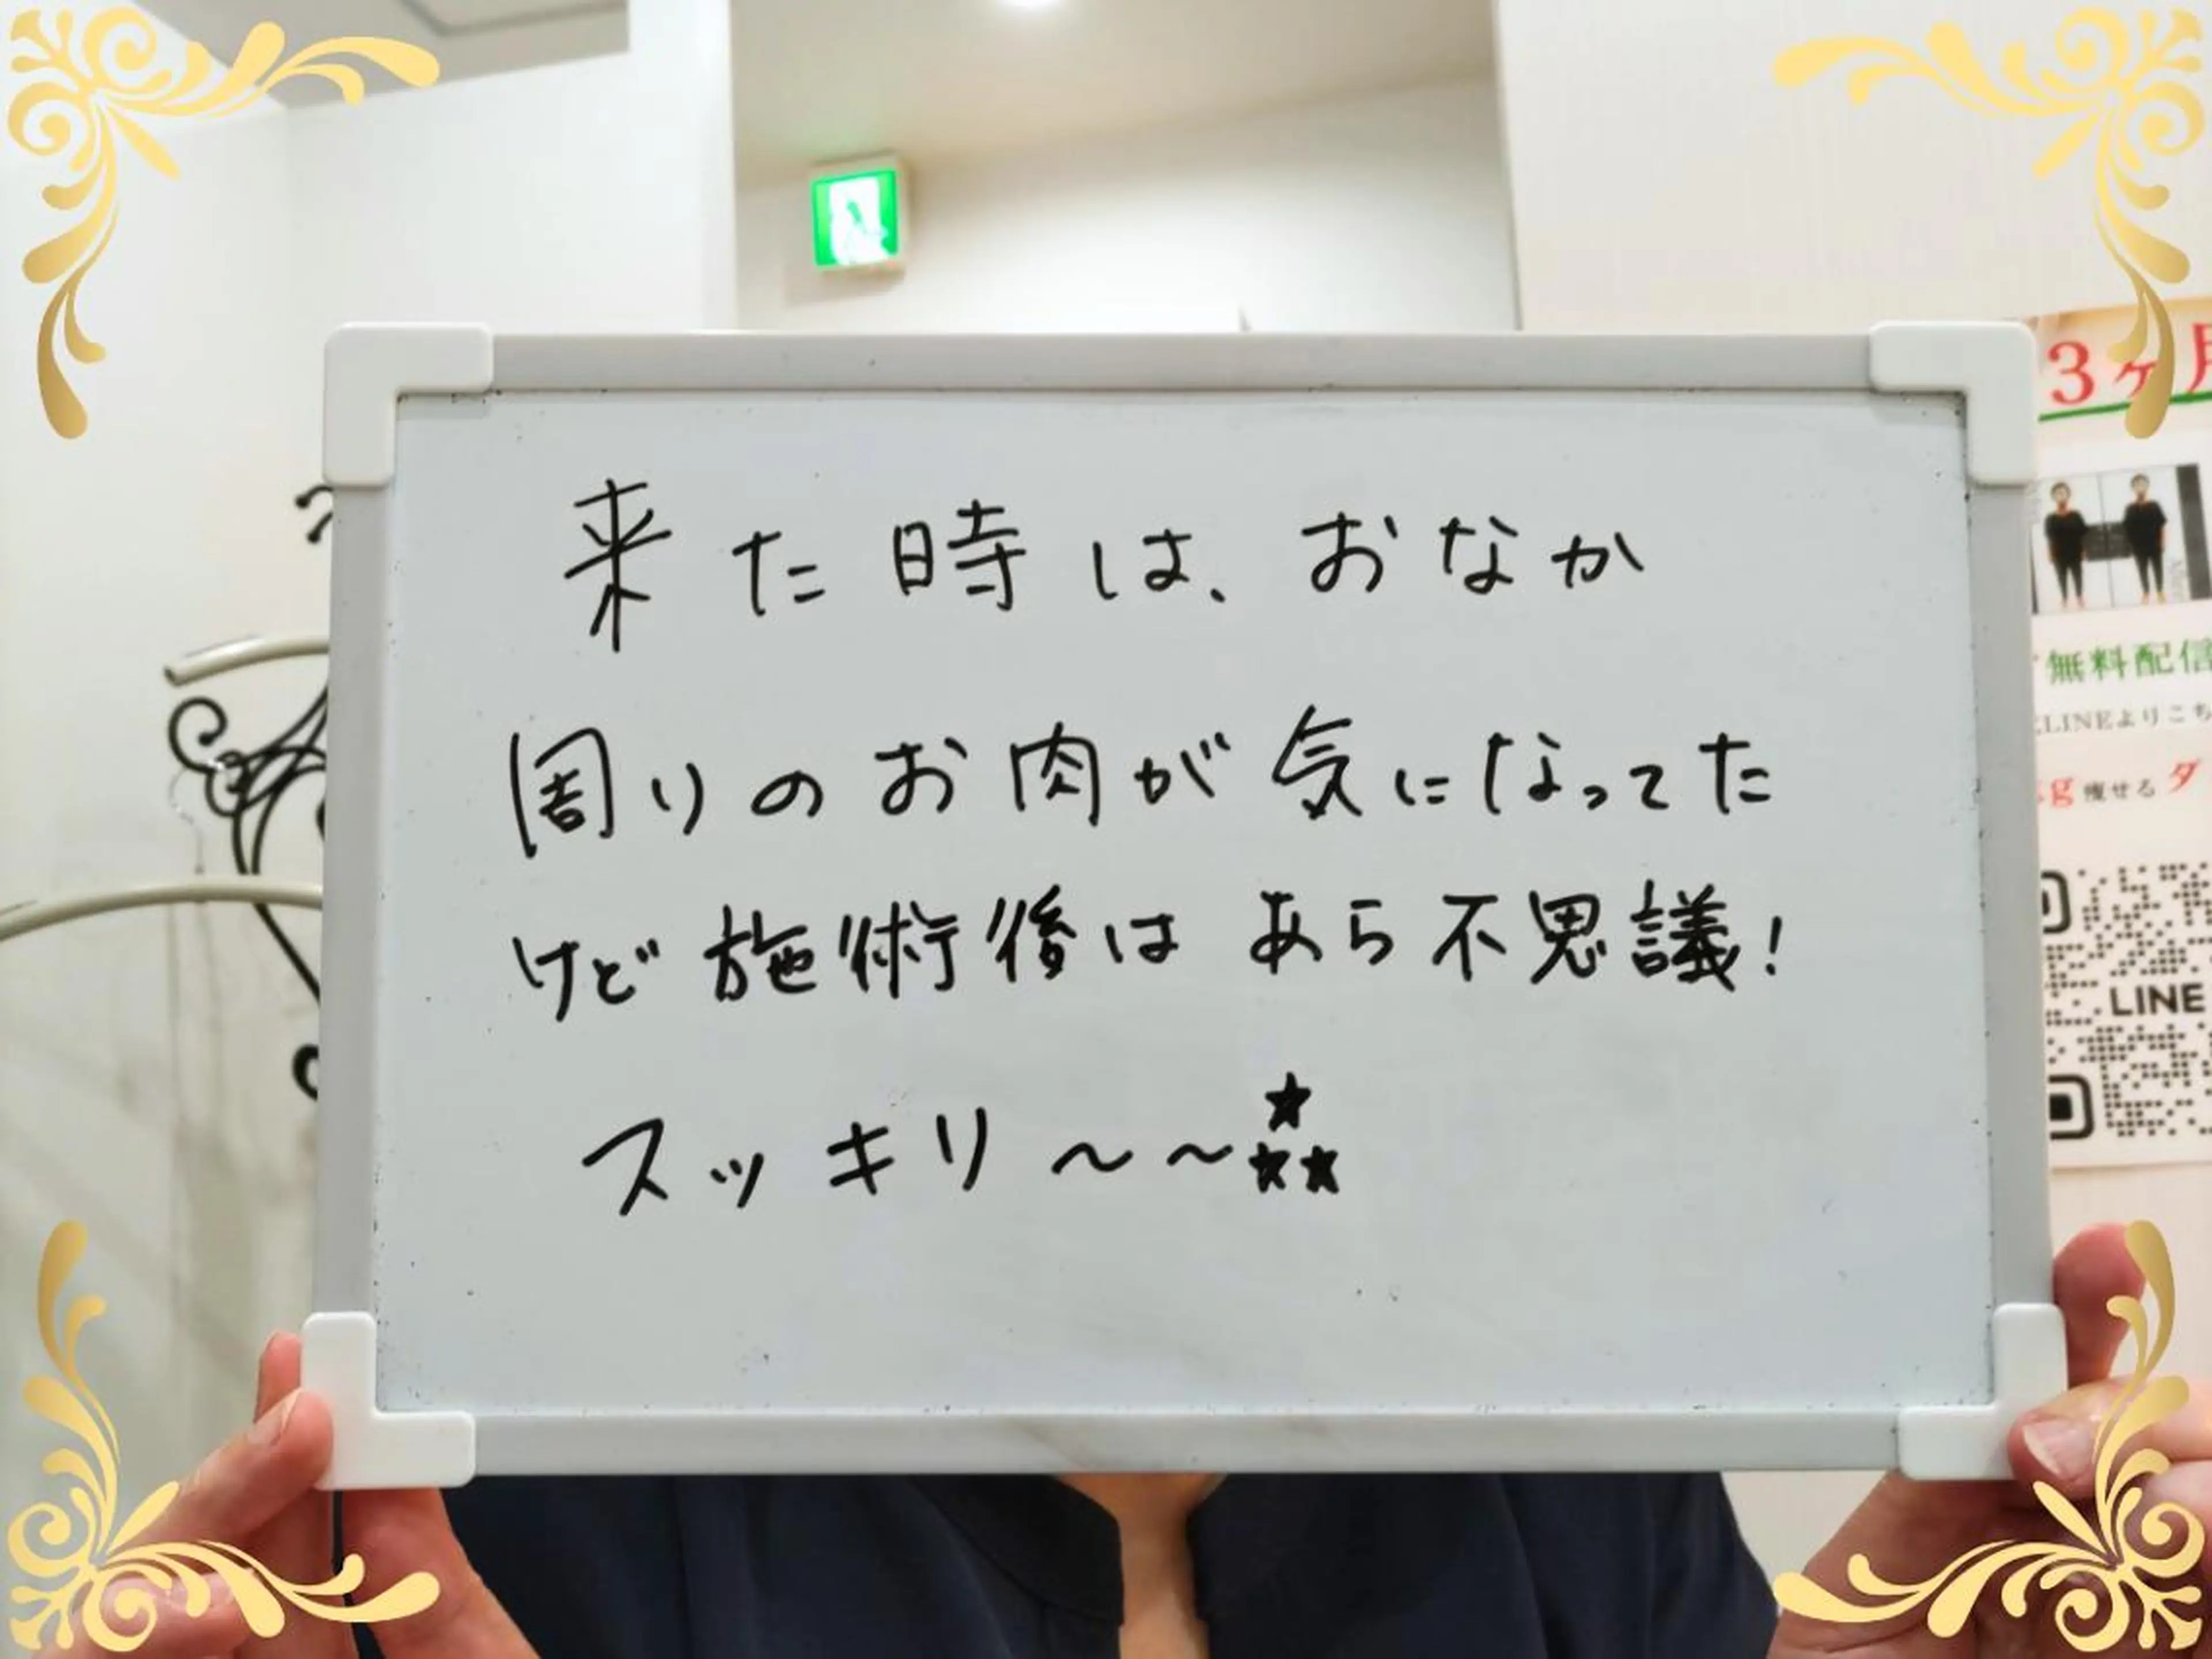 来た時は、おなか
周りのお肉が気になってた
けど施術後はあら不思議!
スッキリ〜〜★★★
3ヶ月
無料配信
LINEよりこち
g痩せるダ
LINE